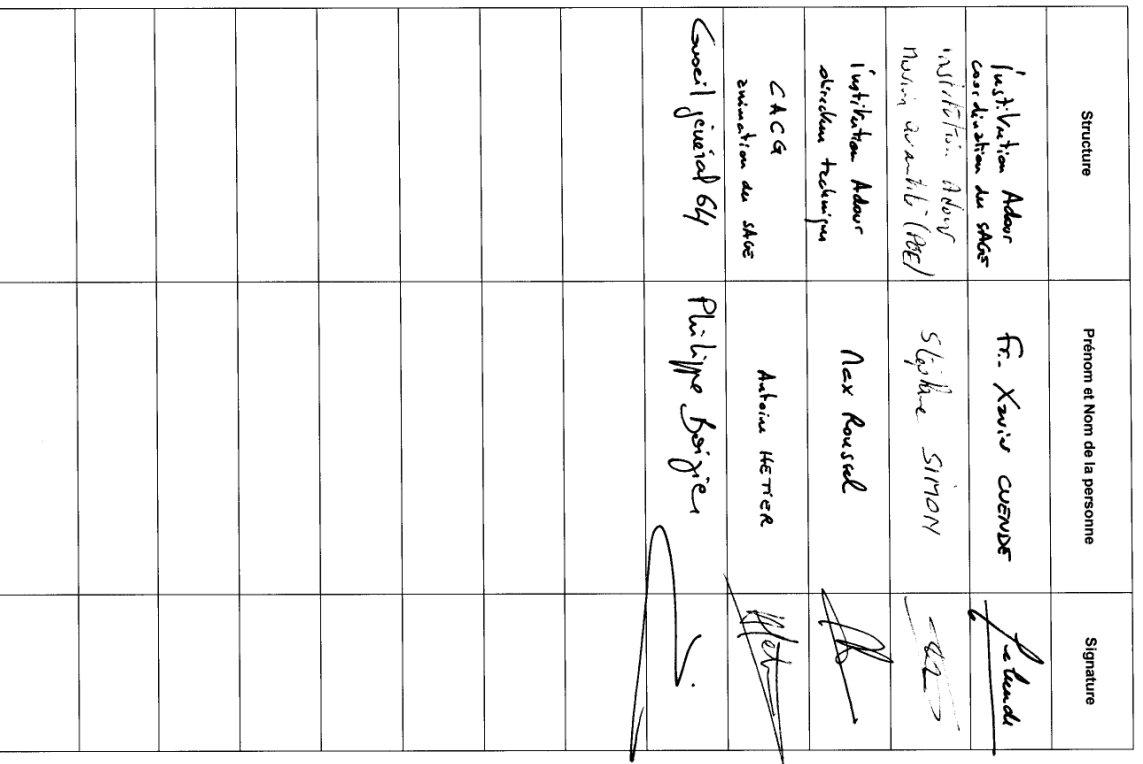 Structure
Prénom et Nom de la personne
Signature
Institution Adour
coordination du SAGE
Fr. Xavier CUENDE
Institution Adour
Mission quantité (PGE)
Stéphane SIMON
Institution Adour
direction technique
Max Roussel
CACG
animation du SAGE
Antoine HETIER
Conseil général 64
Philippe